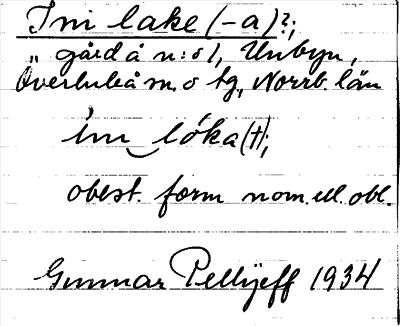 Ini lake (-a)?;
gård å n:o 1, Unbyn,
Överluleå sn. o tg, Norrb. län
i̇n‿lóka(†);
obest. form nom. ell. obl.
Gunnar Pellijeff 1934